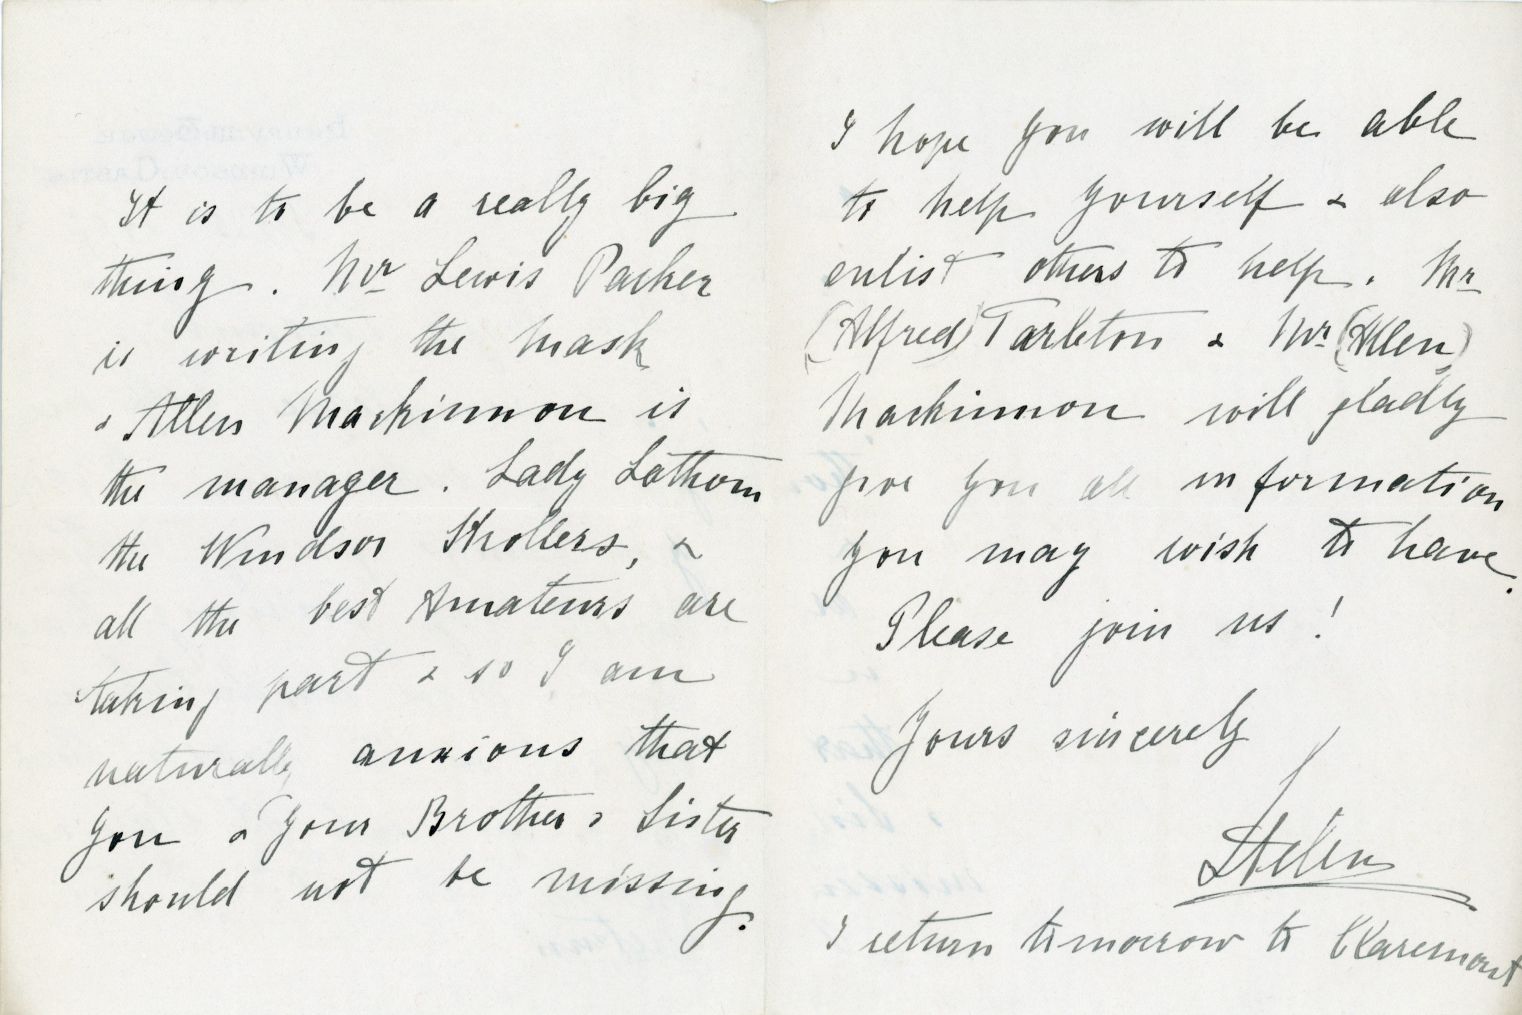 It is to be a really big
thing. Mr Lewis Parker
is writing the Mask
& Allen Mackinnon is
the manager. Lady Lathom
the Windsor Strollers, &
all the best Amateurs are
taking part & so I am
naturally anxious that
you & your Brother & Sister
should not be missing.
I hope you will be able
to help yourself & also
enlist others to help. Mr
(Alfred) Tarleton & Mr (Allen)
Mackinnon will gladly
give you all information
you may wish to have.
Please join us!
Yours sincerely
Helen
I return tomorrow to Claremont